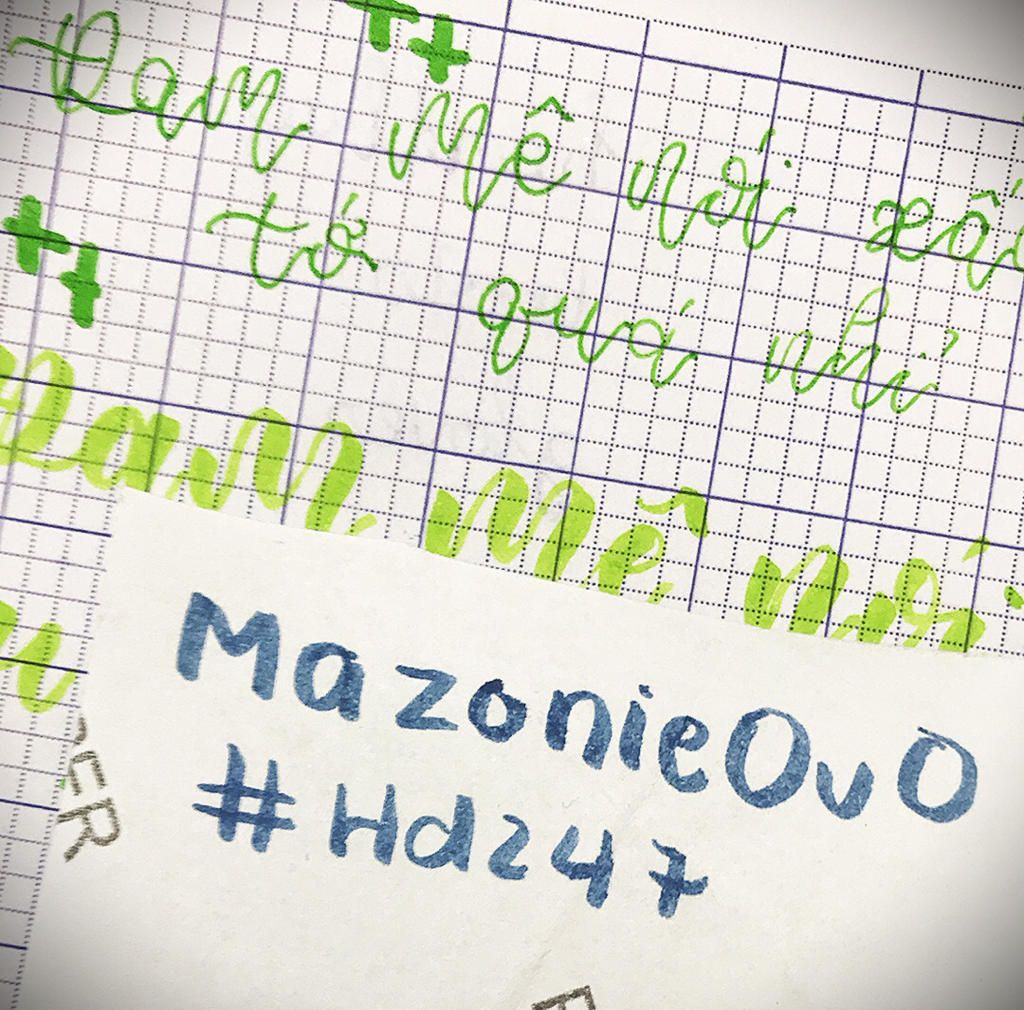 Đam mê nói
tớ quá nhỉ
Đam mê nói
MazonieOvO
#Hd247